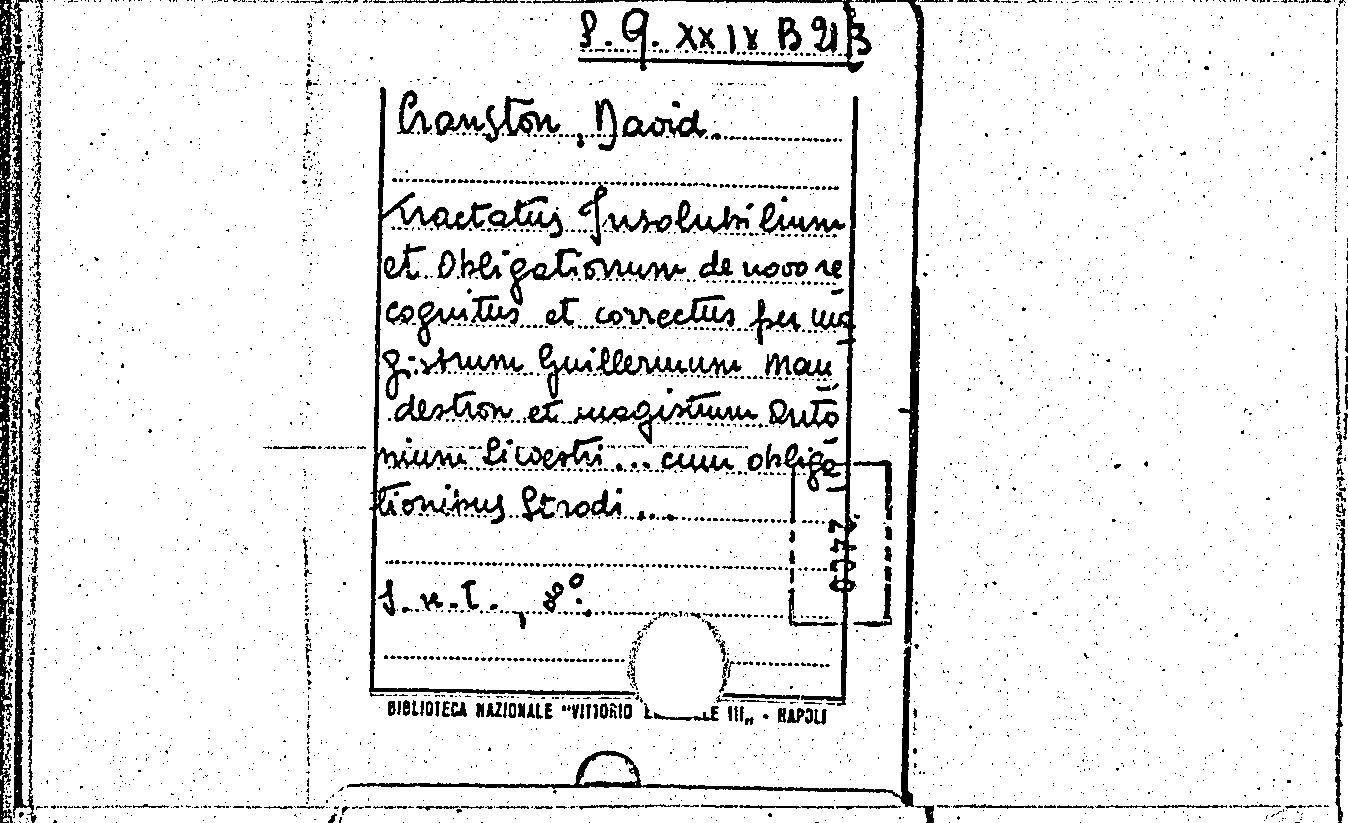 S. Q. XXIX B 21 3
Cranston, David.
Tractatus Insolubilium
et Obligationum de novo re
cognitus et correctus per ma
gistrum Guillermum Man
destron et magistrum Anto
nium Silvestri... cum obliga
tionibus Strodi...
S.n.t., 8°.
BIBLIOTECA NAZIONALE "VITTORIO E LE III„ - NAPOLI